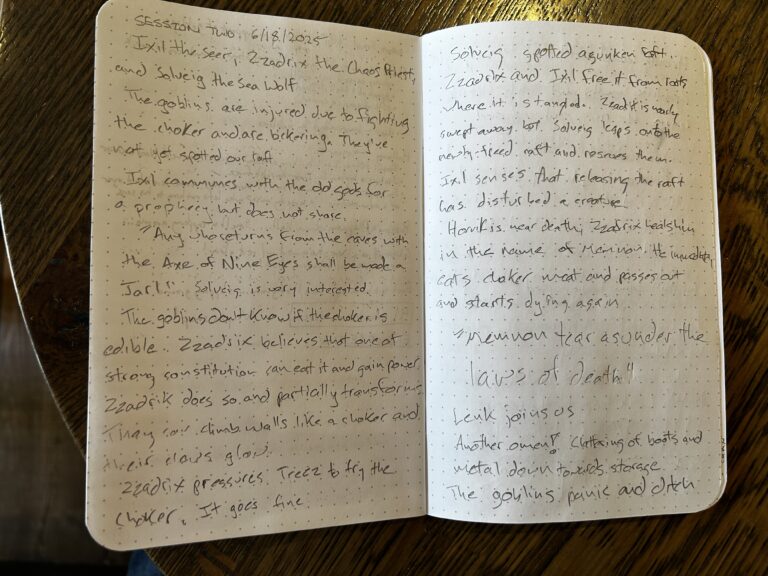 SESSION TWO 6/18/2025
Ixil the seer, Zzadrix the Chaos Priest,
and Solveig the Sea Wolf
The goblins are injured due to fighting
the choker and are bickering. They've
not yet spotted our raft
Ixil communes with the old gods for
a prophecy but does not share.
"Any who returns from the caves with
the Axe of Nine Eyes shall be made a
Jarl!" Solveig is very interested.
The goblins don't know if the choker is
edible. Zzadrix believes that one of
strong constitution can eat it and gain power
Zzadrix does so and partially transforms
They can climb walls like a choker and
their claws glow.
Zzadrix pressures Treez to try the
choker. It goes fine
Solveig spotted a sunken raft.
Zzadrix and Ixil free it from roots
where it is tangled. Zzadrix is nearly
swept away but Solveig leaps onto the
newly-freed raft and rescues them.
Ixil senses that releasing the raft
has disturbed a creature
is near death, Zzadrix heals him
in the name of Memnon. He immediately
eats choker meat and passes out
and starts dying again
"Memnon tear asunder the
laws of death!"
Leuk joins us
Another omen! Clattering of boots and
metal down towards storage
The goblins panic and ditch